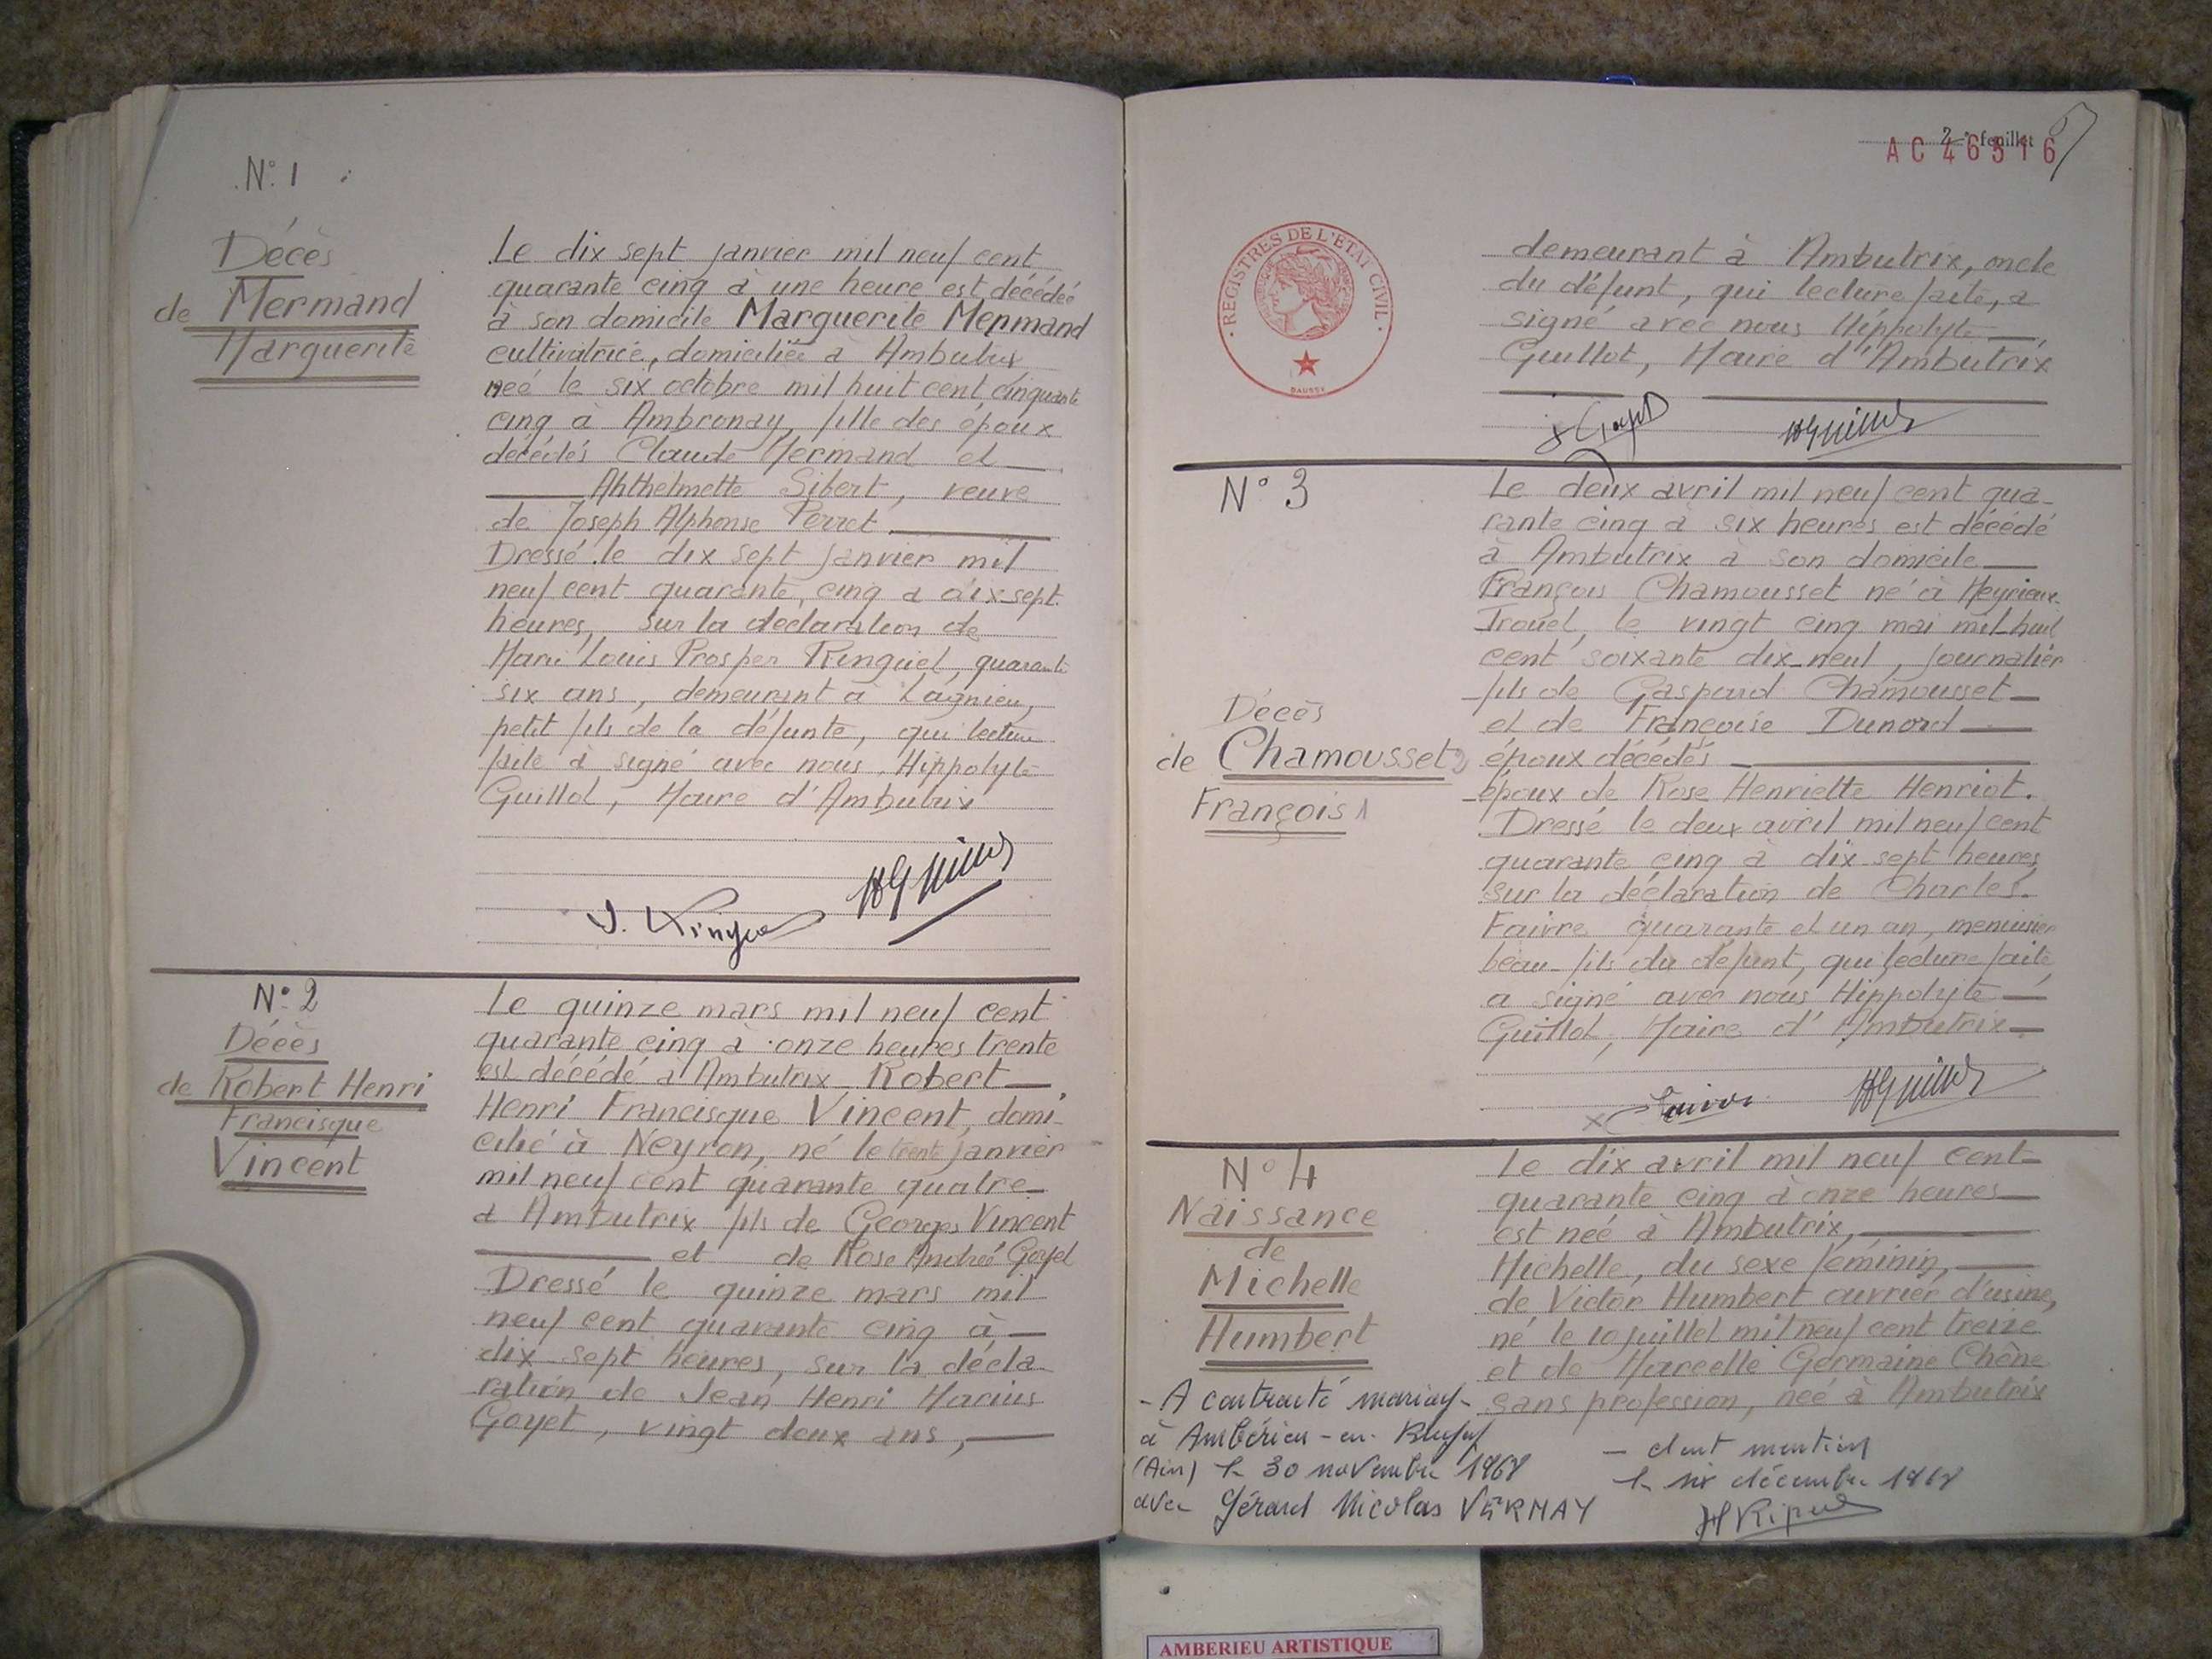 N° 1
Décès
de Mermand
Marguerite
Le dix sept janvier mil neuf cent
quarante cinq à une heure est décédée
à son domicile Marguerite Mermand
cultivatrice, domiciliée à Ambutrix
née le six octobre mil huit cent cinquante
cinq à Ambronay, fille des époux
décédés Claude Mermand et
Anthelmette Sibert, veuve
de Joseph Alphonse Perret
Dressé le dix sept janvier mil
neuf cent quarante cinq à dix sept
heures, sur la déclaration de
Louis Prosper Ringuet, quarante
six ans, demeurant à Lagnieu,
petit fils de la défunte, qui lecture
faite à signé avec nous Hippolyte
Guillot, Maire d'Ambutrix
HGuillot
N° 2
Décès
de Robert Henri
Francisque
Vincent
Le quinze mars mil neuf cent
quarante cinq à onze heures trente
est décédé à Ambutrix Robert
Henri Francisque Vincent, domi-
cilié à Neyron, né le trente janvier
mil neuf cent quarante quatre
à Ambutrix fils de Georges Vincent
et de Rose Andrée Goyet
Dressé le quinze mars mil
neuf cent quarante cinq à
dix sept heures, sur la décla-
ration de Jean Henri Marius
Goyet, vingt deux ans,
2e feuillet
AC 46516
REGISTRES DE L'ETAT CIVIL
DAUSSY
demeurant à Ambutrix, oncle
du défunt, qui lecture faite, a
signé avec nous Hippolyte
Guillot, Maire d'Ambutrix
J Goyet HGuillot
N° 3
Décès
de Chamousset
François
Le deux avril mil neuf cent qua-
rante cinq à six heures est décédé
à Ambutrix à son domicile
François Chamousset né à Meyrieux-
Trouet, le vingt cinq mai mil huit
cent soixante dix-neuf, journalier
fils de Gaspard Chamousset
et de Françoise Dunord
époux décédés
époux de Rose Henriette Henriot.
Dressé le deux avril mil neuf cent
quarante cinq à dix sept heures
sur la déclaration de Charles
Faivre quarante et un an, menuisier
beau-fils du défunt, qui lecture faite
a signé avec nous Hippolyte
Guillot, Maire d'Ambutrix
Faivre HGuillot
N° 4
Naissance
de
Michelle
Humbert
Le dix avril mil neuf cent
quarante cinq à onze heures
est née à Ambutrix,
Michelle, du sexe féminin,
de Victor Humbert ouvrier d'usine,
né le 10 juillet mil neuf cent treize
et de Marcelle Germaine Chêne
sans profession, née à Ambutrix
- A contracté mariage
à Ambérieu-en-Bugey
(Ain) le 30 novembre 1968
avec Gérard Nicolas VERNAY
- dont mention
le six décembre 1968
AMBERIEU ARTISTIQUE